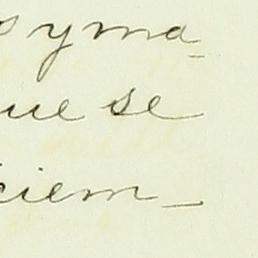 s y ma-
ue se
ciem-